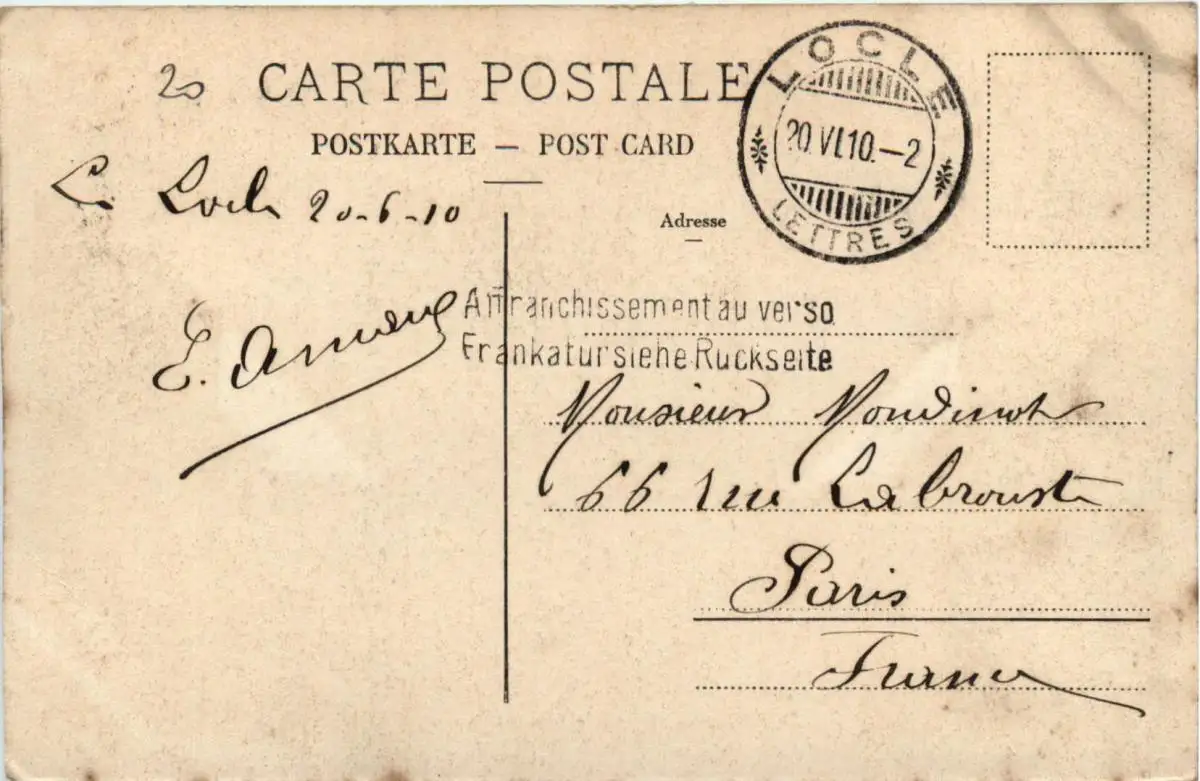 20
CARTE POSTALE
POSTKARTE — POST CARD
LOCLE
20.VI.10.–2
LETTRES
Le Locle 20-6-10
Adresse
Affranchissement au verso
Frankatur siehe Rückseite
E.
Monsieur
66 rue Labrouste
Paris
France